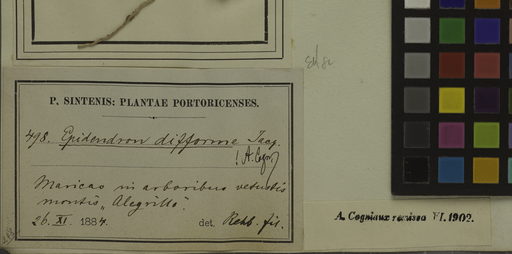 P. SINTENIS: PLANTAE PORTORICENSES.
498. Epidendron difforme Jacq.
! A. Cogn.
Maricao in arboribus vetustis
montis „Alegrillo".
26. XI. 1884. det. Rchb. fil.
A. Cogniaux revisea VI. 1902.